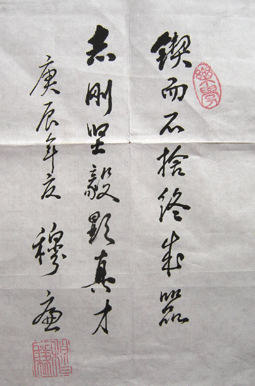 锲而不捨终成器
志刚坚毅显真才
庚辰年夏 穆廉